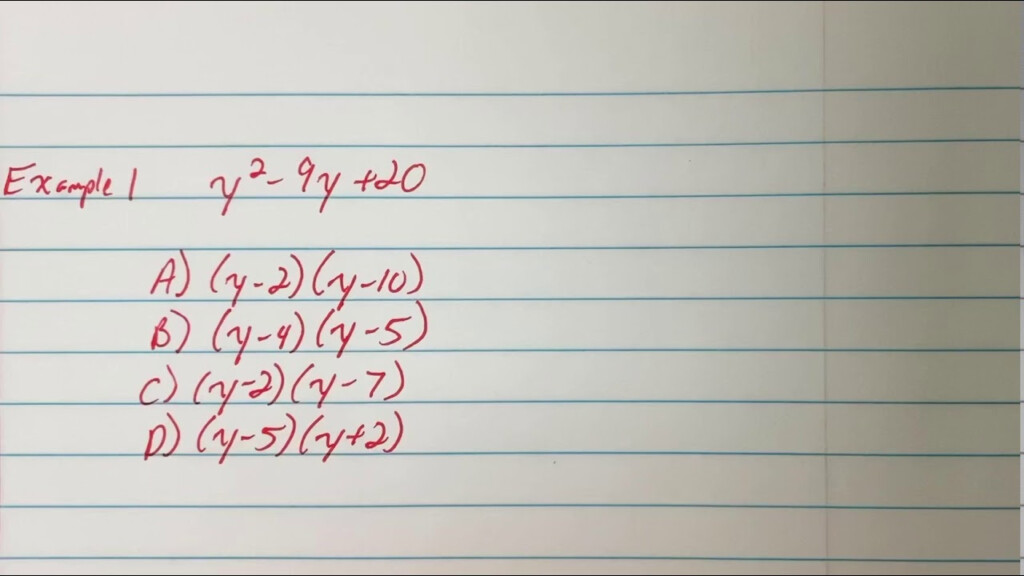 Example 1 y²-9y+20
A) (y-2)(y-10)
B) (y-4)(y-5)
C) (y-2)(y-7)
D) (y-5)(y+2)